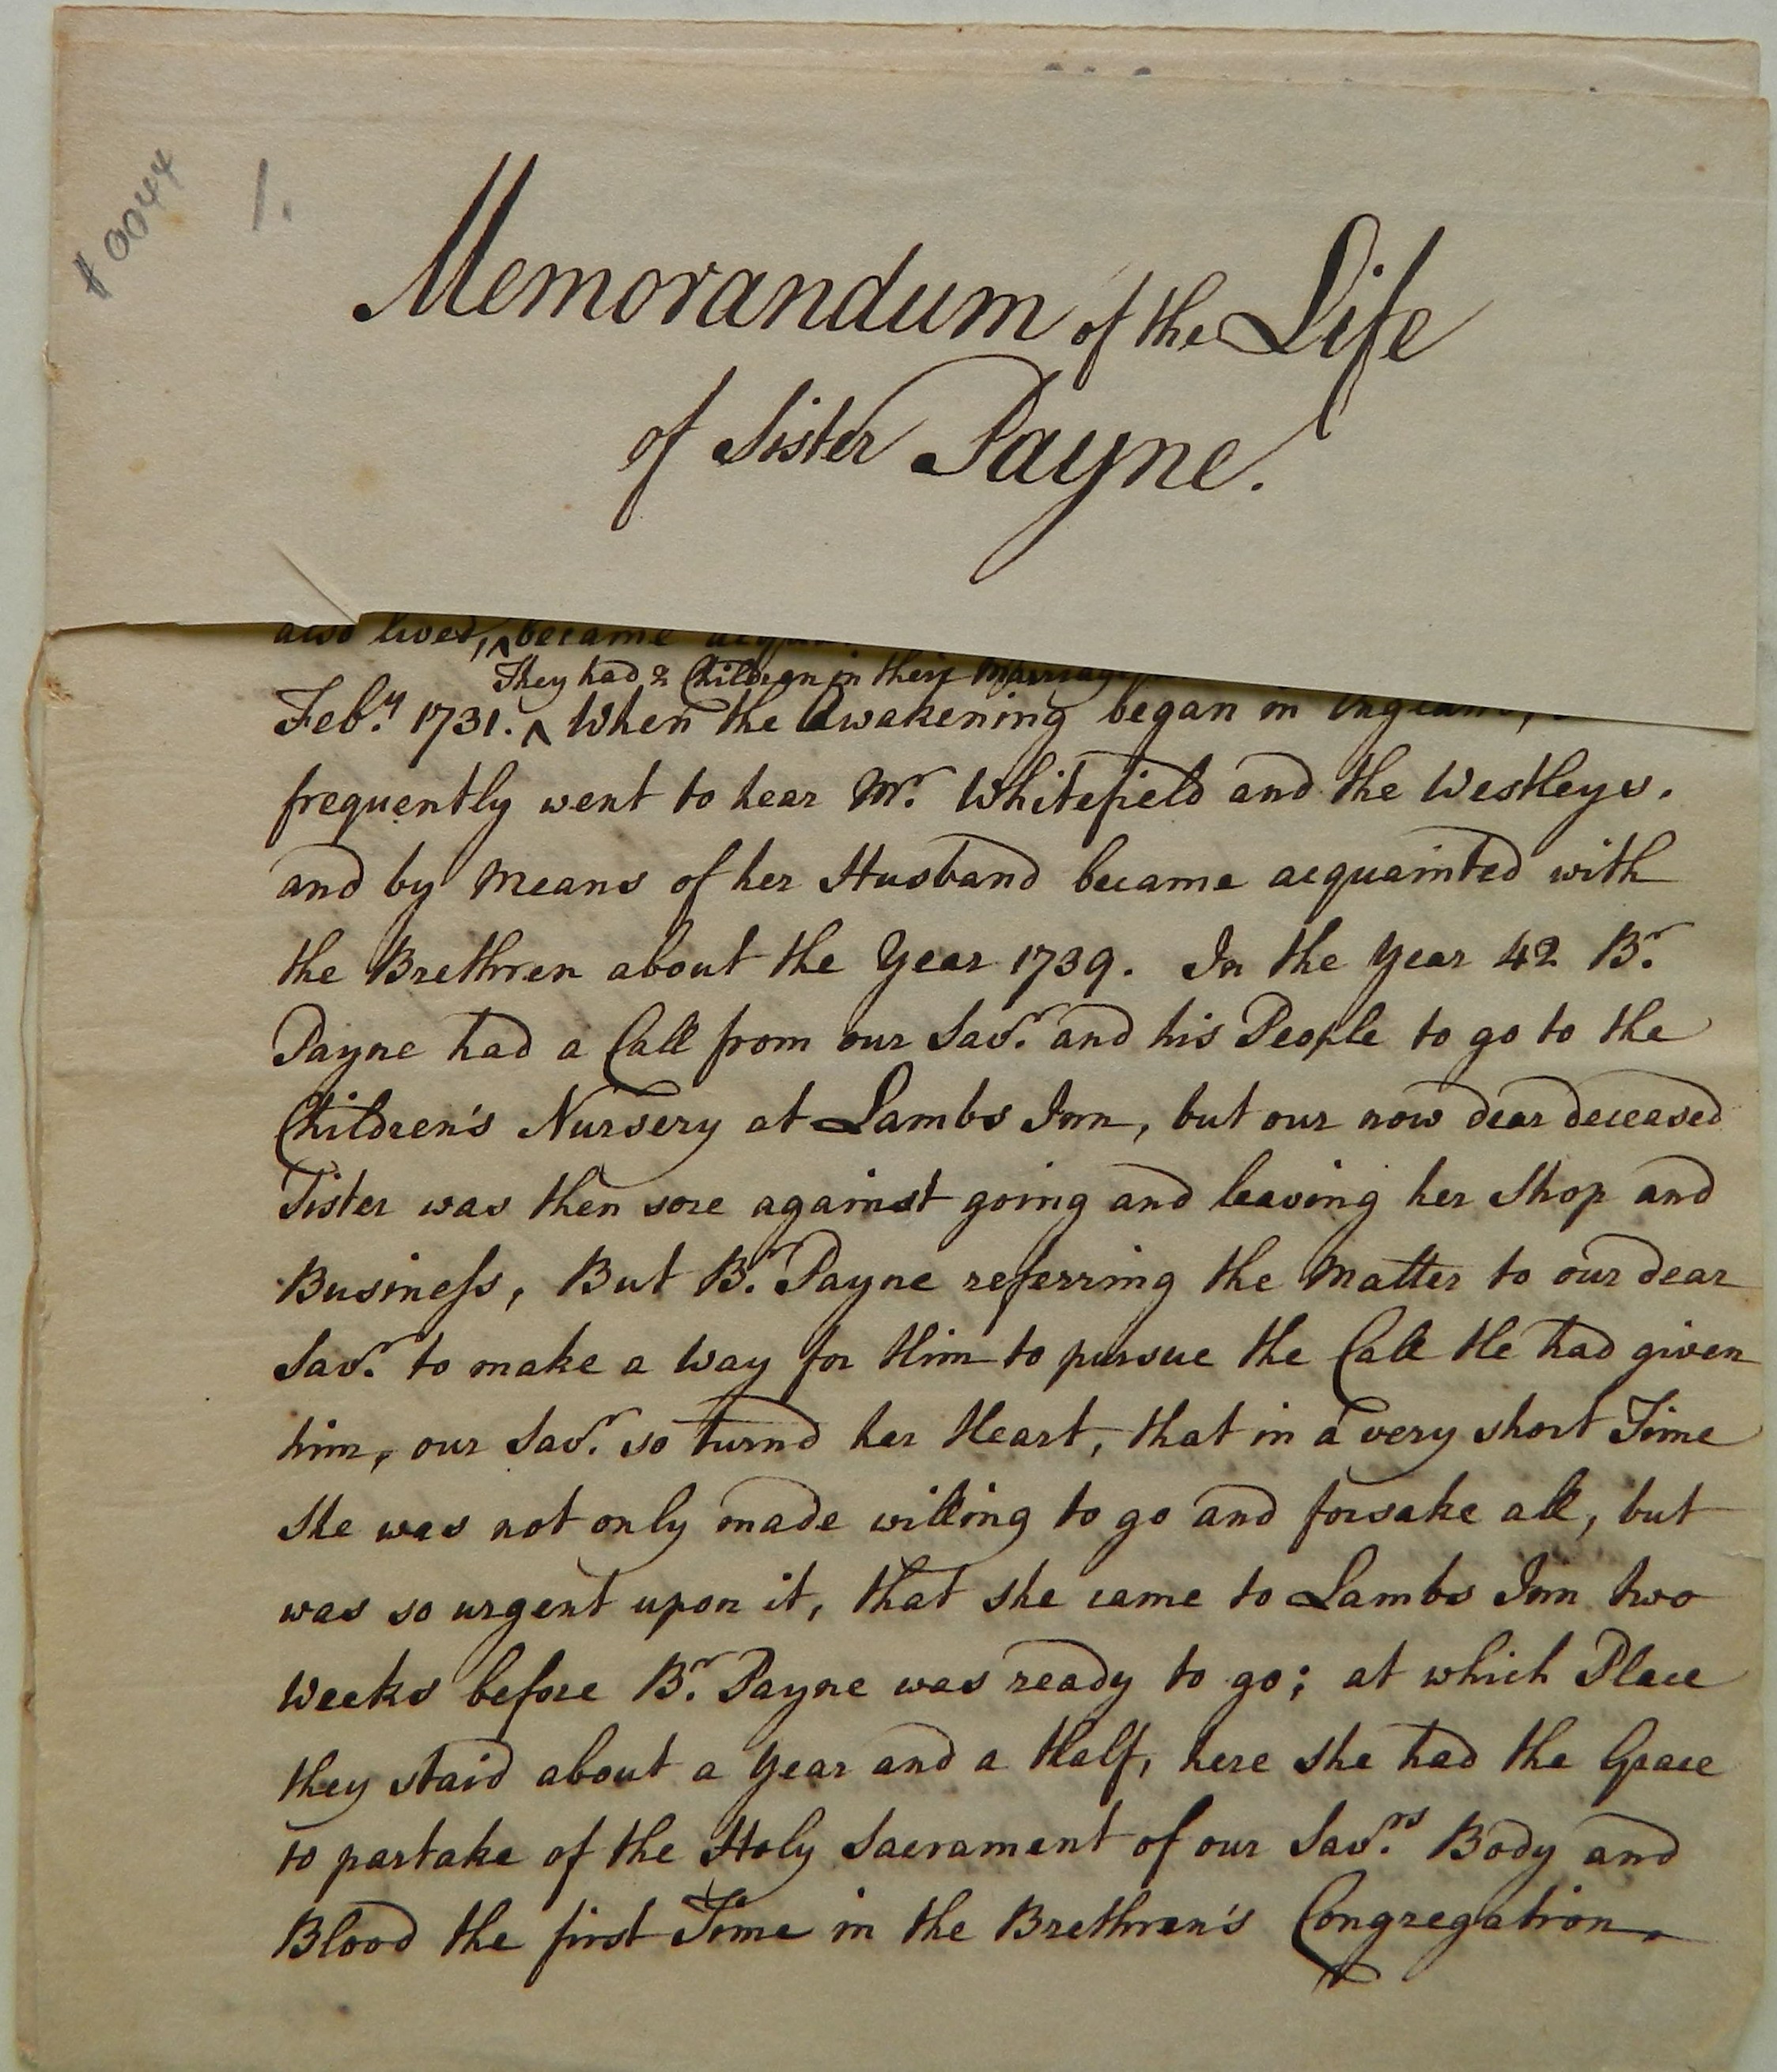 0044
1.
Memorandum of the Life
of Sister Payne.
also lived, ^ became
They had 2 Children in their Marriage
Feb.y 1731. ^ When the Awakening began in England,
frequently went to hear Mr. Whitefield and the Westleys.
and by Means of her Husband became acquainted with
the Brethren about the Year 1739. In the Year 42 Br.
Payne had a Call from our Savr. and his People to go to the
Children's Nursery at Lambs Inn, but our now dear deceased
Sister was then sore against going and leaving her Shop and
Business, But Br. Payne referring the Matter to our dear
Savr. to make a Way for Him to pursue the Call He had given
him, our Savr. so turnd her Heart, that in a very short Time
She was not only made willing to go and forsake all, but
was so urgent upon it, that she came to Lambs Inn two
Weeks before Br. Payne was ready to go; at which Place
they staid about a Year and a Half, here she had the Grace
to partake of the Holy Sacrament of our Savrs. Body and
Blood the first Time in the Brethren's Congregation.